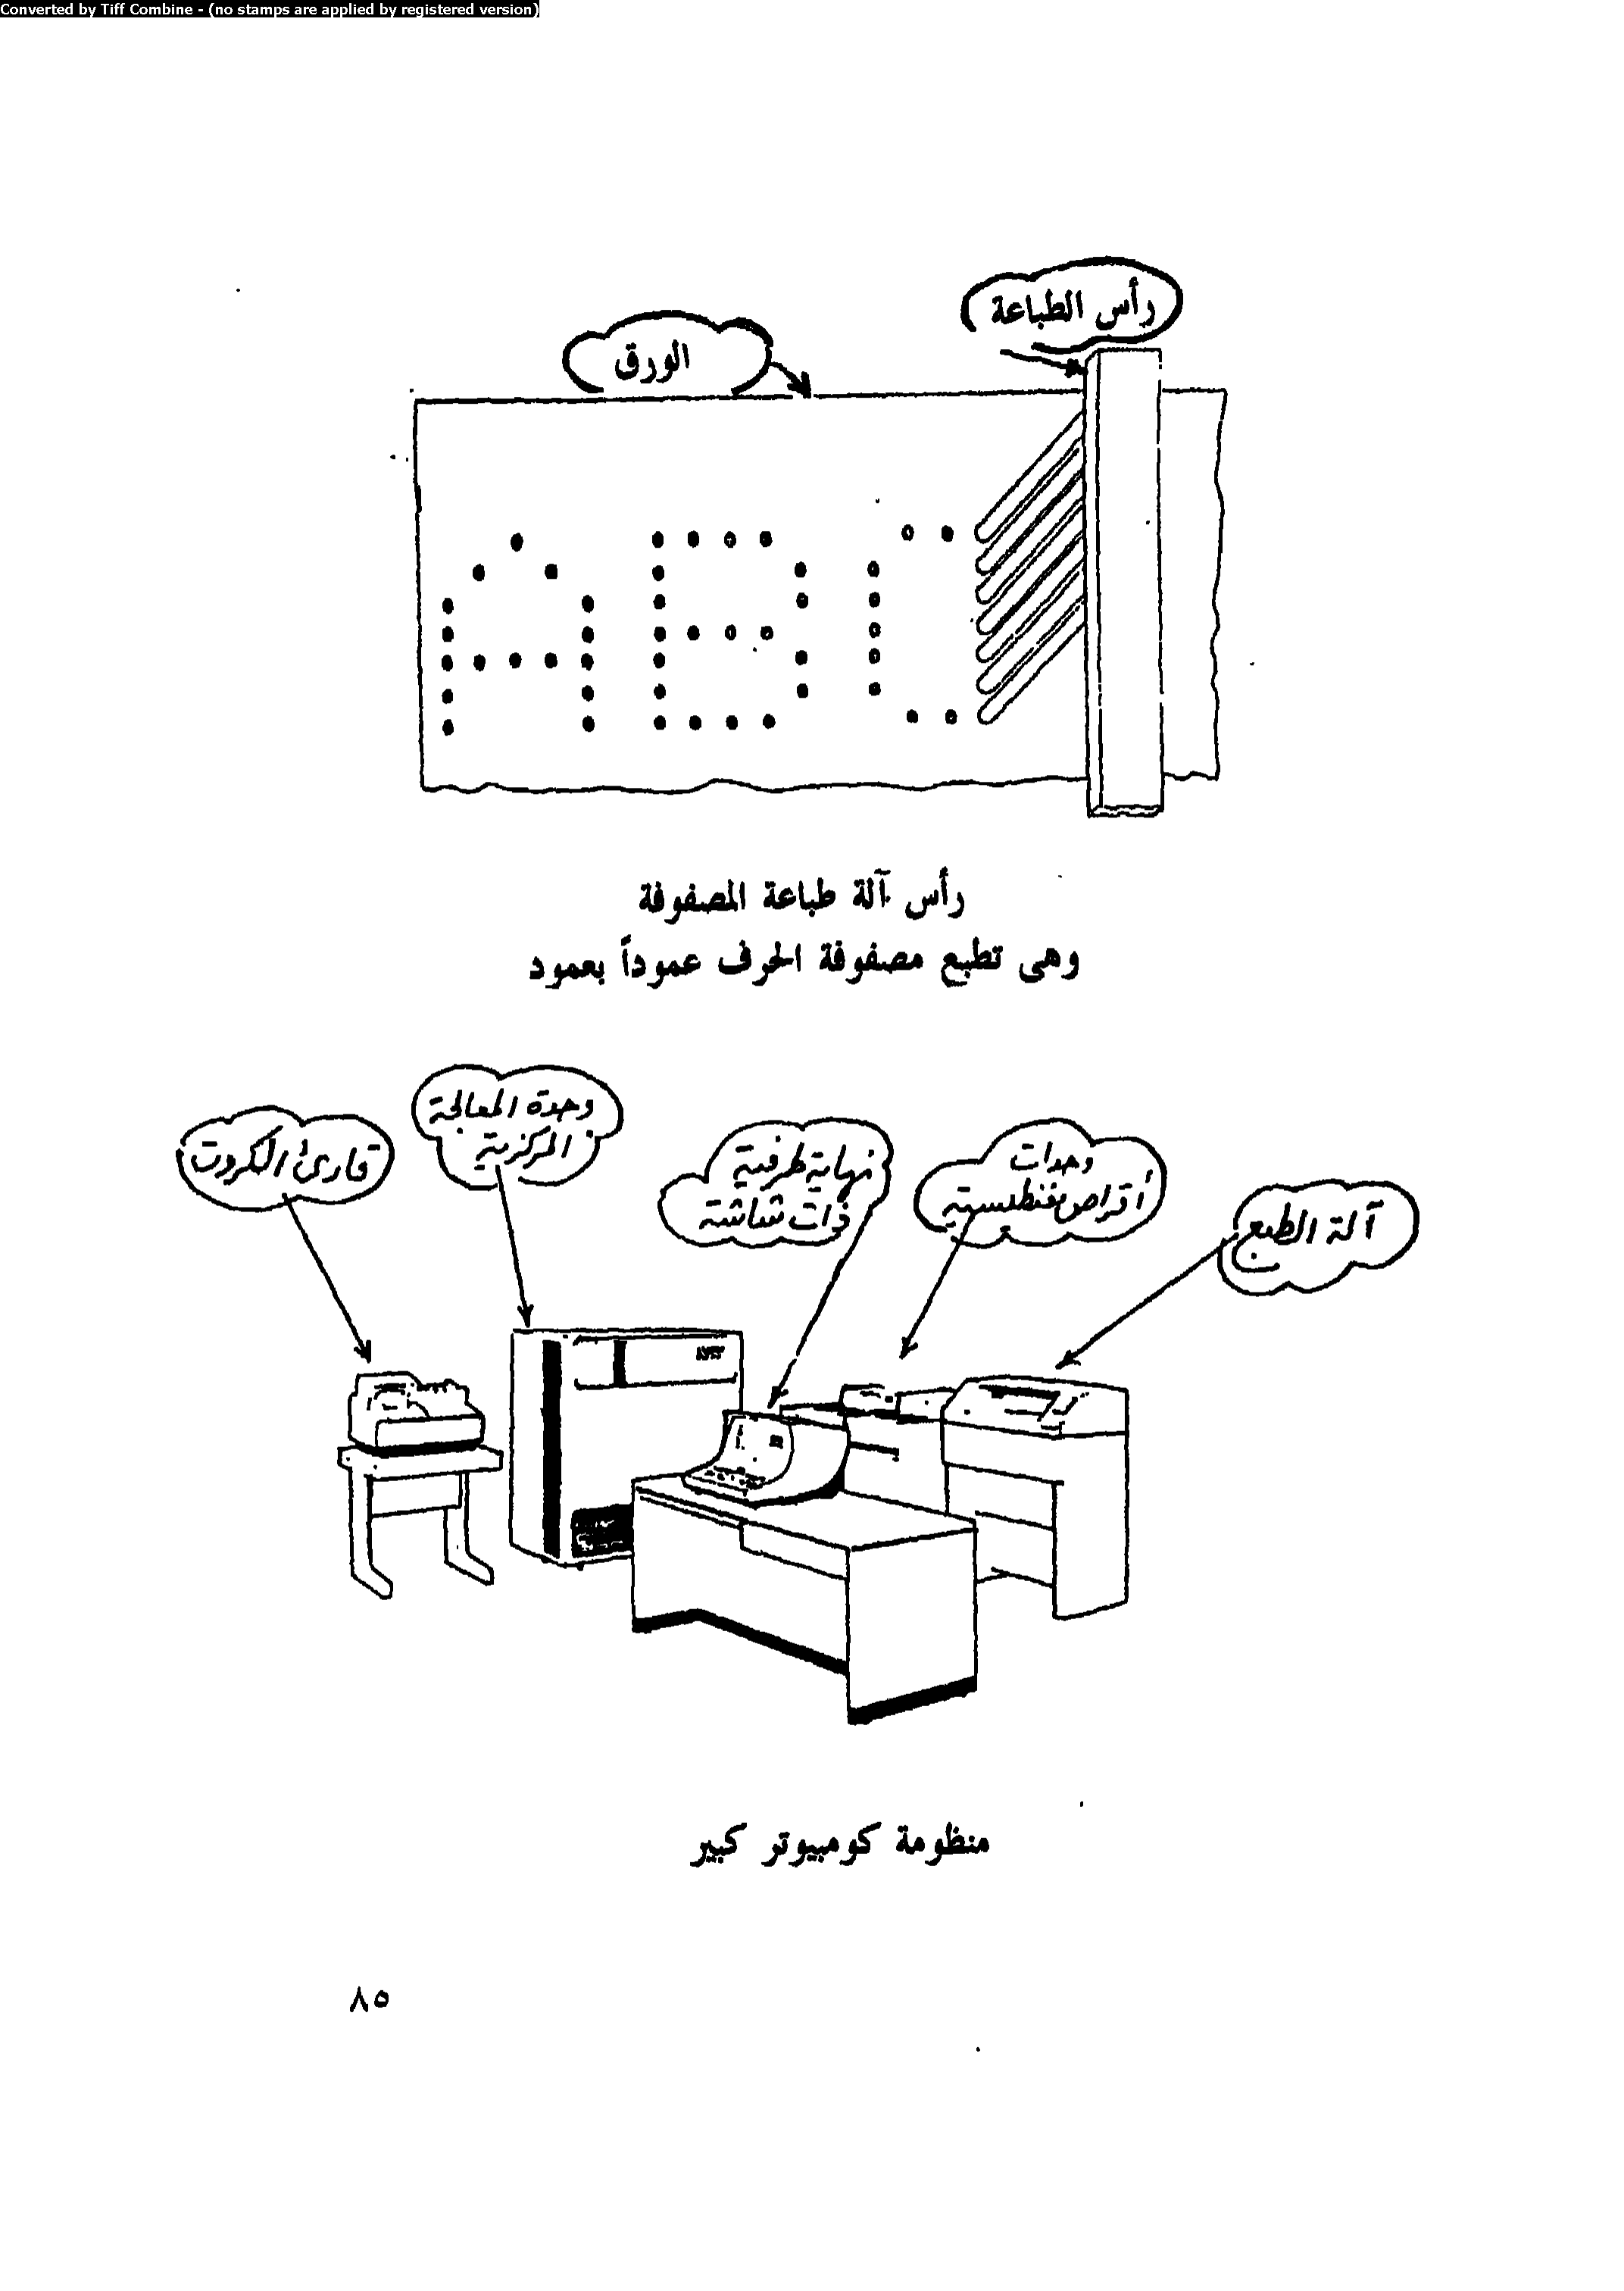 Converted by Tiff Combine - (no stamps are applied by registered version)
رأس الطباعة
الورق
رأس آلة طباعة المصفوفة
وهى تطبع مصفوفة الحرف عموداً بعمود
وحدة المعالجة
المركزية
قارئ الكروت
نهاية طرفية
ذات شاشة
وحدات
أقراص مغنطيسية
آلة الطبع
منظومة كومبيوتر كبير
٨٥